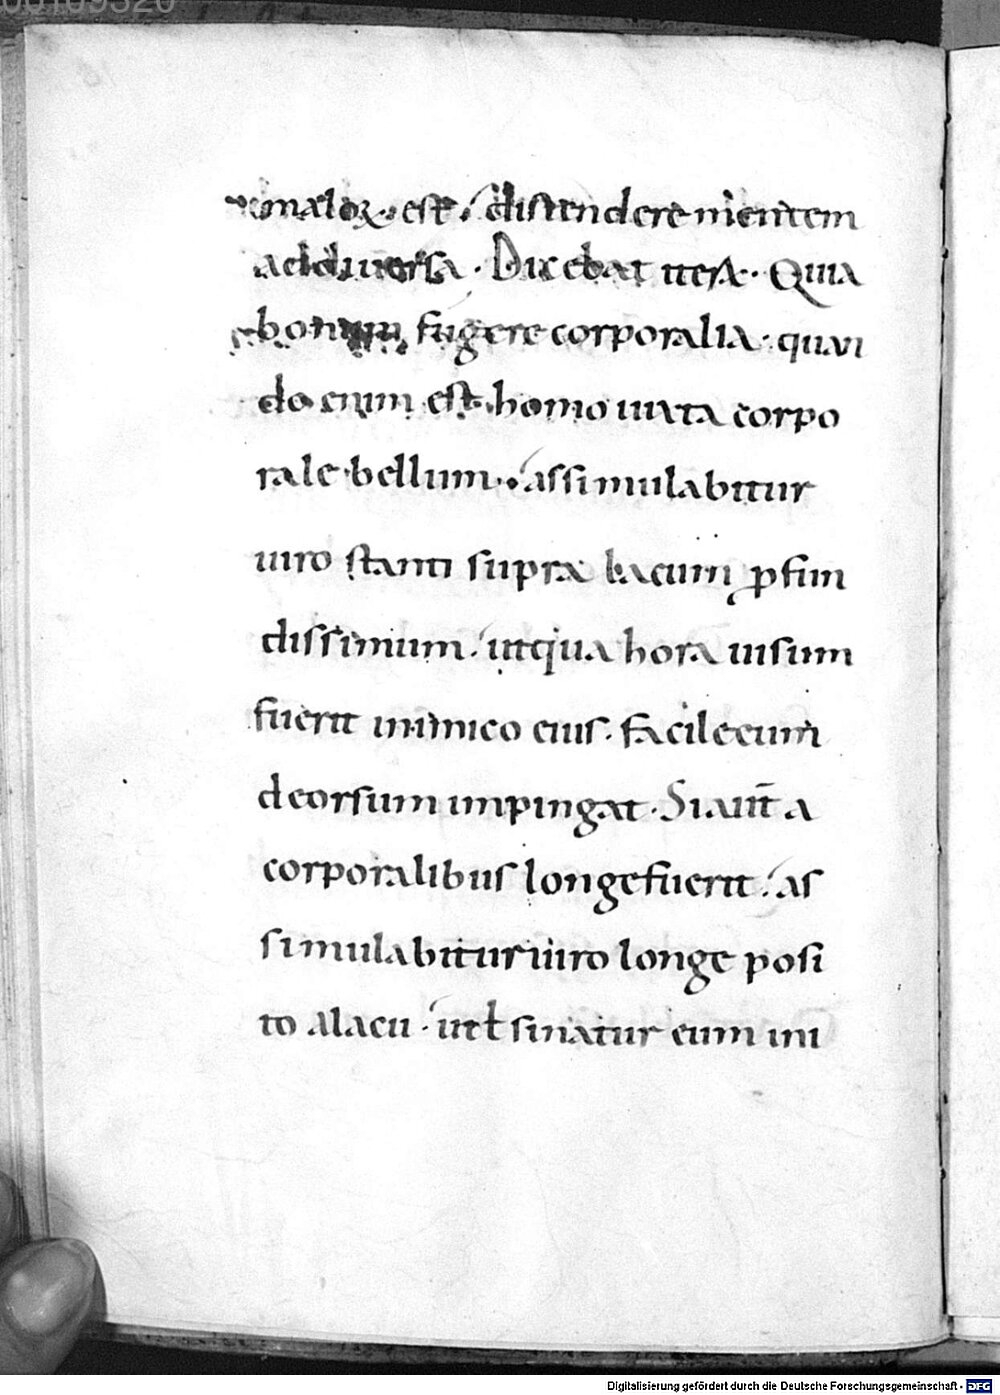 maloꝝ. est. distendere mentem
addiuersa. Dicebat iterū. Quia
bonum fugere corporalia. quan
do enim est homo iuxta corpo
rale bellum. assimulabitur
uiro stanti supra lacum ꝓfun
dissimum. utqua hora uisum
fuerit inimico eius. facile eum
deorsum impingat. Siaut̄ a
corporalibus longefuerit. as
simulabitur uiro longe posi
to alacu. ut& sinatur eum ini
Digitalisierung gefördert durch die Deutsche Forschungsgemeinschaft - DFG